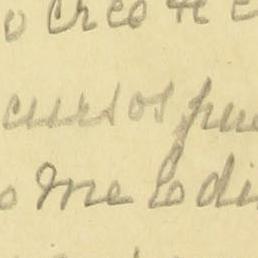 o creo q e
cursos pue
o me lo di